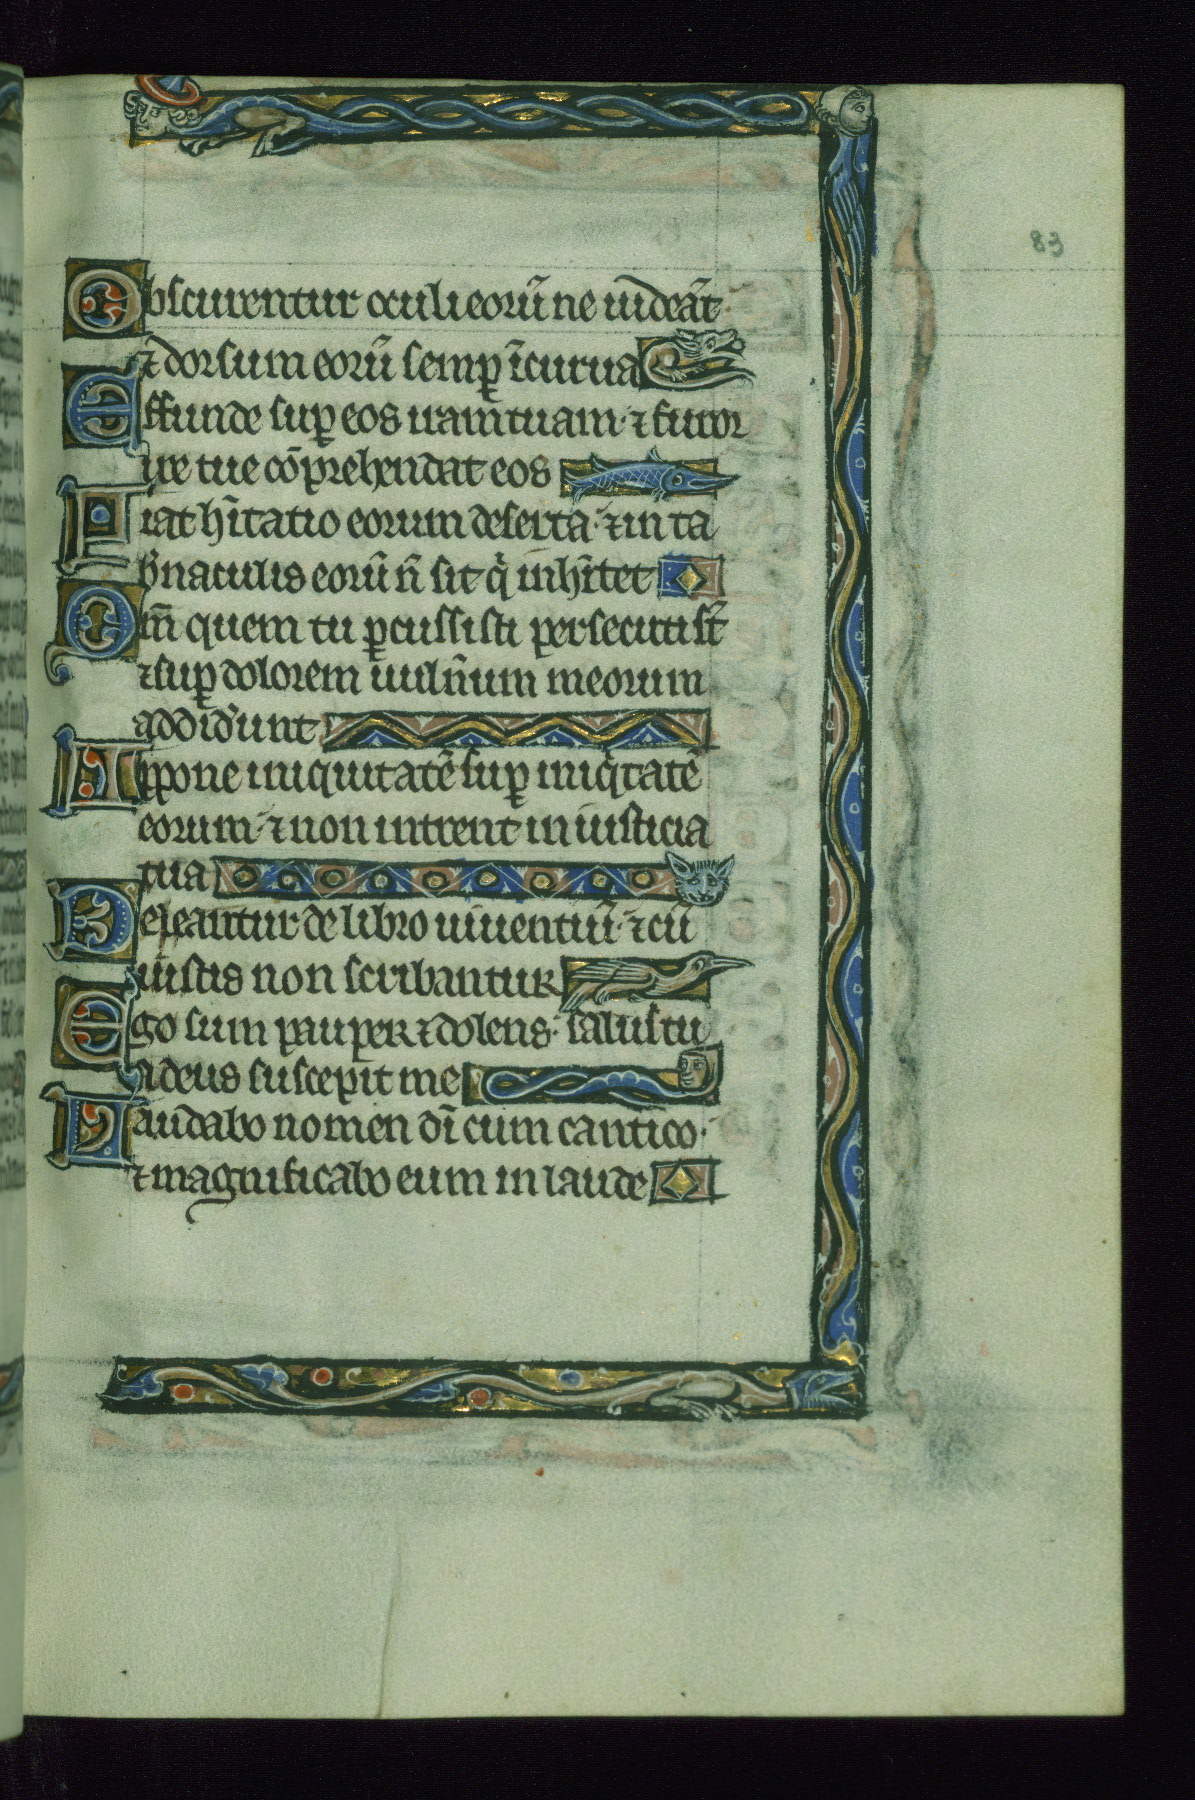 83
Obscurentur oculi eorū ne uideāt
⁊ dorsum eorū semꝑ īcurua
Effunde suꝑ eos iram tuam · ⁊ furor
ire tue cōprehendat eos
Fiat hītatio eorum deserta · ⁊ in ta
b̾naculis eorū n̄ sit q̇ inhītet
Qm̄ quem tu ꝑcussisti persecuti st̄
⁊ suꝑ dolorem uuln̄um meorum
addid̾unt
Appone iniquitatē suꝑ iniq̇tatē
eorum · ⁊ non intrent in iusticia
tua
Deleantur de libro uiuentiū · ⁊ cū
iustis non scribantur
Ego sum pauper ⁊ dolens · salus tu
a deus suscepit me
Laudabo nomen dī cum cantico ·
⁊ magnificabo eum in laude